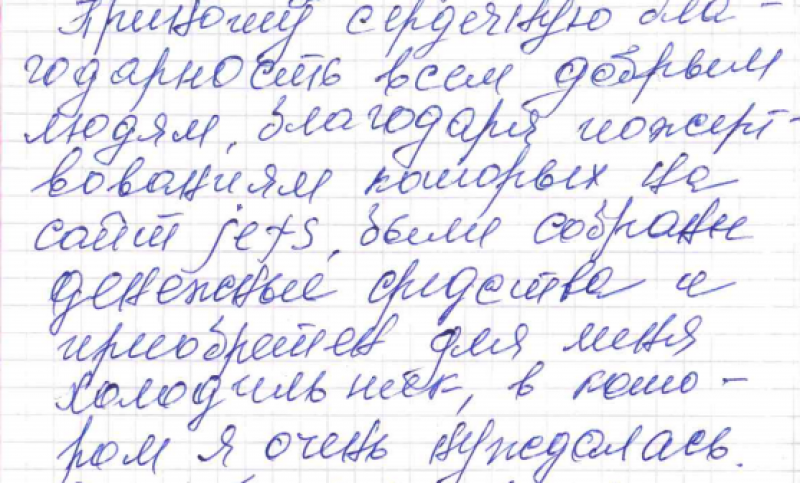 Приношу сердечную бла-
годарность всем добрым
людям, благодаря пожерт-
вованиям которых на
сайт jets, были собраны
денежные средства и
приобретен для меня
холодильник, в кото-
ром я очень нуждалась.